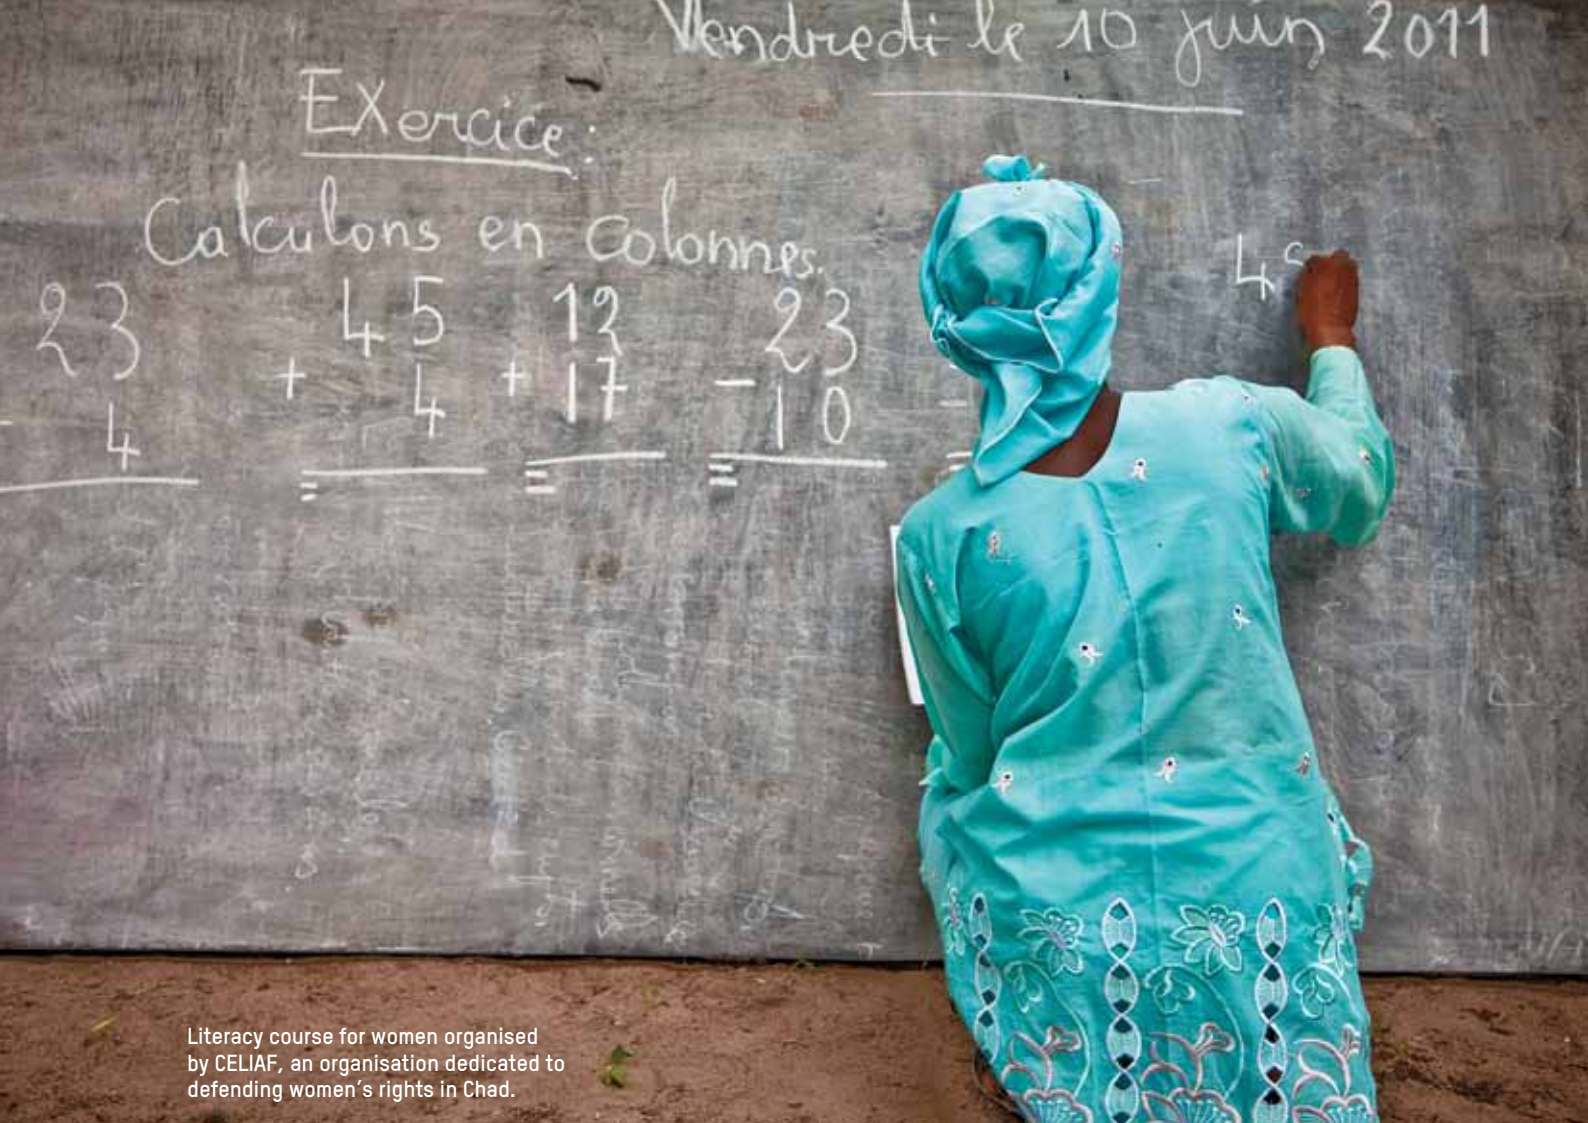 Vendredi le 10 juin 2011
Exercice :
Calculons en colonnes.
23 45 12 23 4
+ 4 + 17 - 10 -
- 4
= = = =
Literacy course for women organised
by CELIAF, an organisation dedicated to
defending women's rights in Chad.